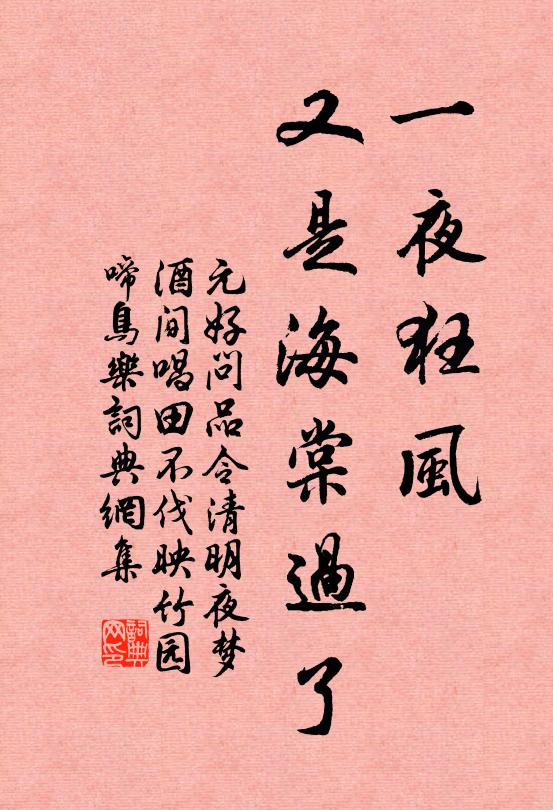 一夜狂風
又是海棠過了
元好问品令清明夜梦
酒间唱田不伐映竹园
啼鳥樂詞典網集
詞典網印